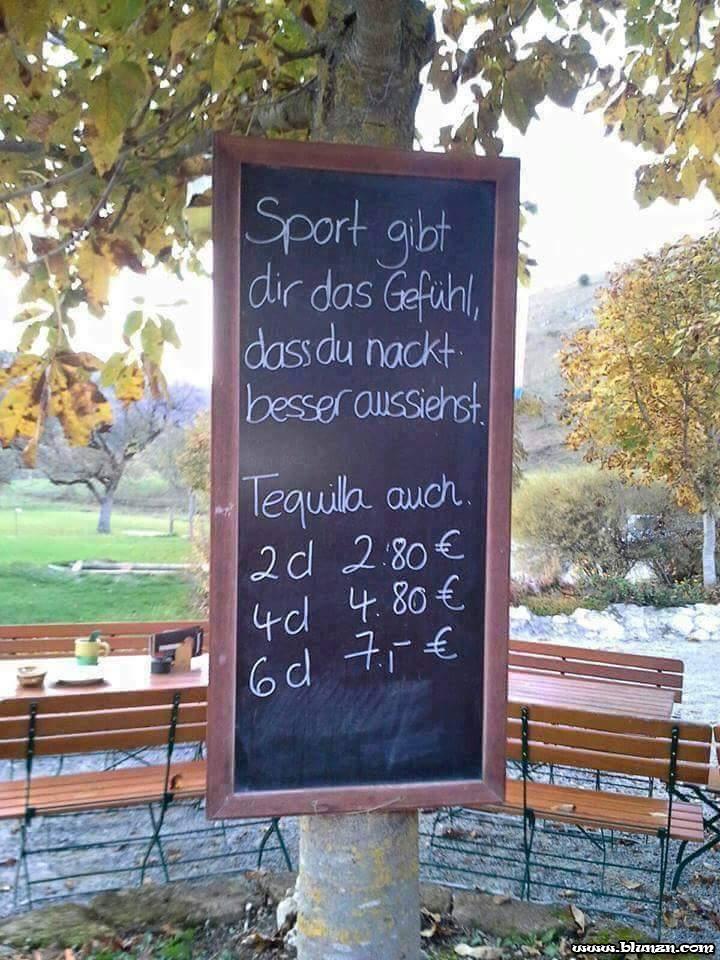 Sport gibt
dir das Gefühl,
dass du nackt
besser aussiehst.
Tequilla auch.
2 cl 2.80 €
4 cl 4.80 €
6 cl 7,- €
www.blunzn.com